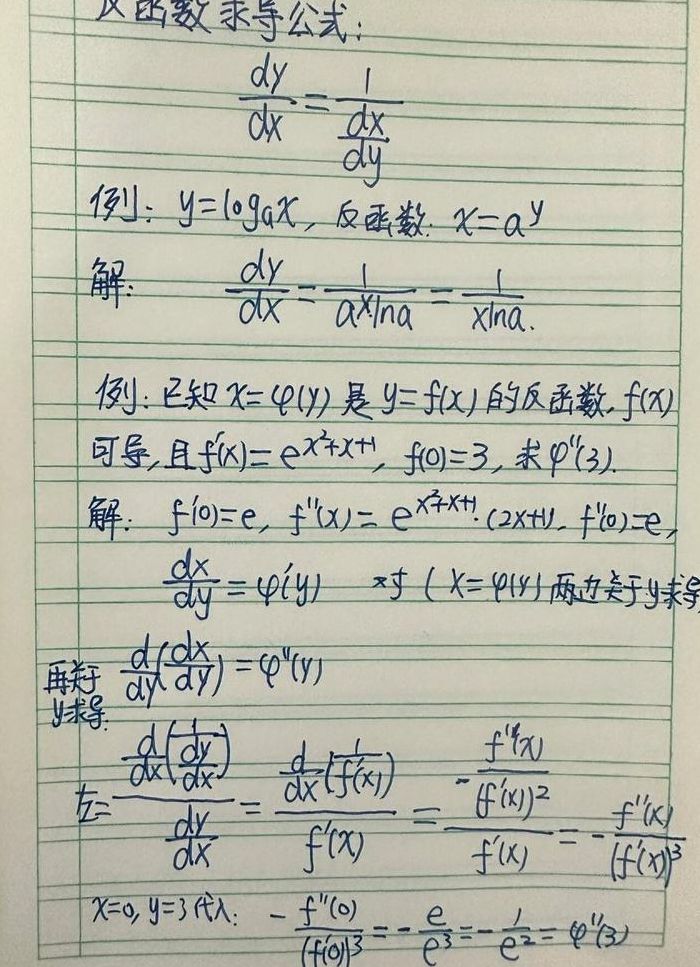 反函数求导公式:
dy/dx = 1/(dx/dy)
例: y=logₐx, 反函数: x=a^y
解: dy/dx = 1/(a^x lna) = 1/(xlna).
例: 已知 x=φ(y) 是 y=f(x) 的反函数, f(x)
可导, 且f'(x)=e^(x²+x+1), f(0)=3, 求φ''(3).
解: f'(0)=e, f''(x)=e^(x²+x+1)·(2x+1). f''(0)=e,
dx/dy = φ'(y) 对 (x=φ(y) 两边关于y求导
再关于 d/dy(dx/dy) = φ''(y)
y求导.
左= (d/dx(1/(dy/dx)))/(dy/dx) = (d/dx(1/f'(x)))/f'(x) = (-f''(x)/(f'(x))²)/f'(x) = -f''(x)/(f'(x))³
x=0, y=3代入: -f''(0)/(f'(0))³ = -e/e³ = -1/e² = φ''(3)